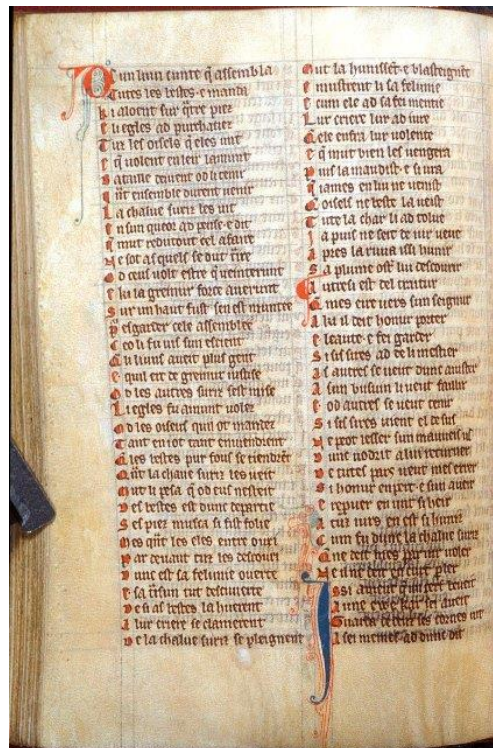 D un liun cunte q̃ assembla
Tutes les bestes e manda
K i aloent sur q̃tre piez
E li egles ad purchacier
T uz les oisels q̃ eles unt
E q̃ volent en leir lamunt
B ataille deivent od li tenir
Q ñt ensemble durent venir
L a chalue suriz les vit
E n sun queor ad pense e dit
Q mut redutout cel afaire
N e sot as quels se dut traire
O d ceus volt estre q̃ veinterunt
E ki la greinur force averunt
S ur un haut fust sen est muntee
P esgarder cele assemblee
C eo li fu vis sun escient
Q li liuns aveit plus gent
E quil ert de greinur iustise
O d les autres suriz sest mise
L i egles fu amunt volez
O d les oiseus qui ot mandez
T ant en i ot tant en i vendient
Q les bestes pur fous se tiendr̃et
Q ñt la chalue suriz les veit
M ut li pesa q̃ od eus nesteit
D es bestes est dunc departie
S es piez musca si fist folie
M es q̃nt les eles entre ouri
P ar devant tuz les descouri
D unc est sa felunie overte
E sa traisun tut descuverte
D e si as bestes la huerent
A lur criere se clamerent
D e la chalue suriz se pleignent
M ut la hunissẽt e blasteignẽt
E mustrent li sa felunie
E cum ele ad sa fei mentie
L ur criere lur ad sure
Q ele enfra lur volente
E q̃ mut bien les vengera
P uis la maudist e si iura
Q iames en liu ne venist
Q oisels ne beste la veist
T ute la clar li ad tolue
I a puis ne seit de iur veue
A pres la ruva issi hunir
S a plume ost lur descouurir
A utresi est del traitur
Q mes eire vers sun seignur
A ki il deit honur porter
E leaute e fei garder
S i ses sires ad de li mestier
A s autres se veut dunc aiuster
A sun busuin li veut faillir
E od autres se veut tenir
S i ses sires vient el desus
N e poet lesser sun mauveis us
D unc vodreit a lui returner
D e tutes pars veut mes errer
S i honur en pert e sun aveir
E repruer en unt si heir
A tuz iurs en est si hunix
C um fu dunc la chalue suriz
Q ne deit mes par iur voler
N e il ne deit en curt p̃ler
I ssi avient qui sert beveit
A une ewe kar sei aveit
G uarda se beur ses cornes vit
A sei meimes ad dunc dit